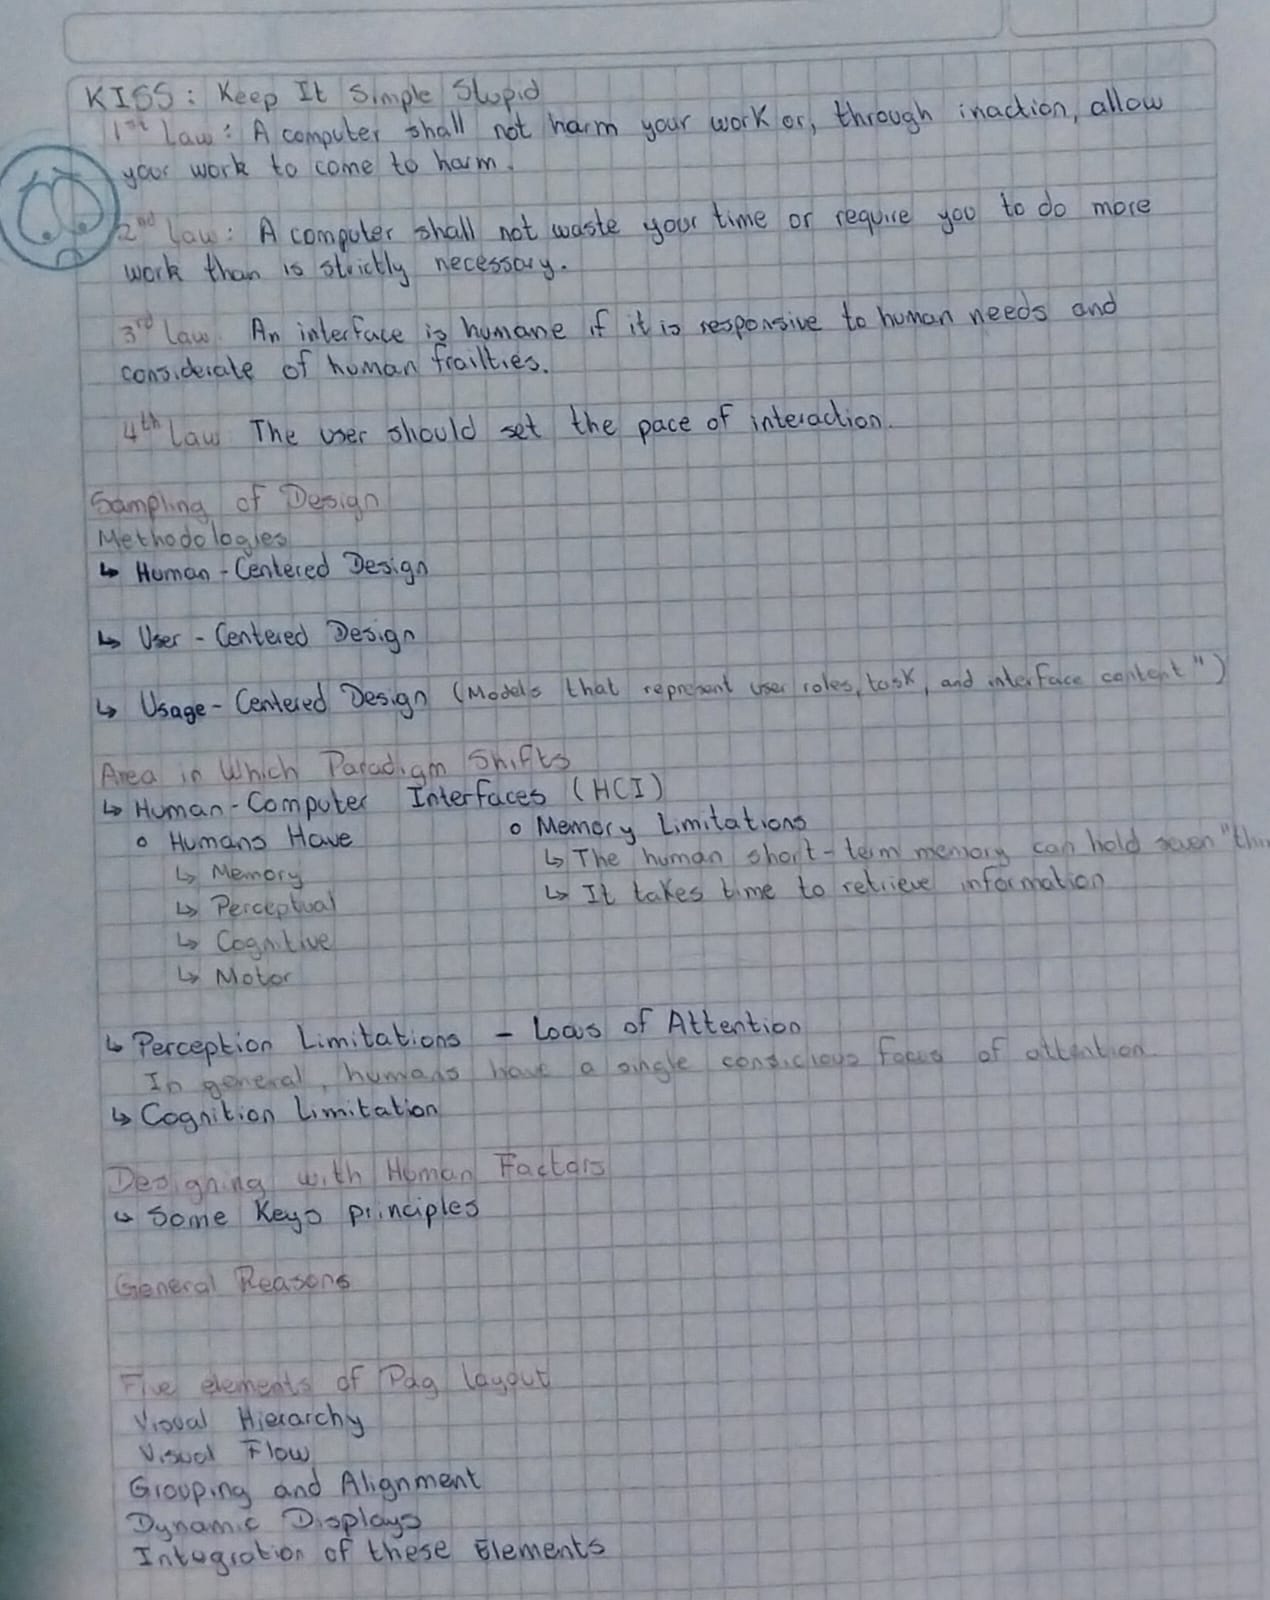 KISS: Keep It Simple Stupid
1st Law: A computer shall not harm your work or, through inaction, allow
your work to come to harm.
2nd Law: A computer shall not waste your time or require you to do more
work than is strictly necessary.
3rd Law. An interface is humane if it is responsive to human needs and
considerate of human frailties.
4th Law The user should set the pace of interaction.
Sampling of Design
Methodologies
↳ Human-Centered Design
↳ User-Centered Design
↳ Usage-Centered Design (Models that represent user roles, task, and interface content")
Area in Which Paradigm Shifts
↳ Human-Computer Interfaces (HCI)
o Humans Have
↳ Memory
↳ Perceptual
↳ Cognitive
↳ Motor
o Memory Limitations
↳ The human short-term memory can hold seven
↳ It takes time to retrieve information
↳ Perception Limitations - Locus of Attention
In general, humans have a single focus of attention.
↳ Cognition Limitation
Designing with Human Factors
↳ Some Keys principles
General Reasons
Five elements of Pag layout
Visual Hierarchy
Visual Flow
Grouping and Alignment
Dynamic Displays
Integration of these Elements